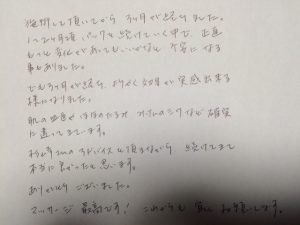 施術して頂いてから 3ヶ月が経ちました。
1〜2ヶ月頃、パックも続けていく中で、正直
もっと変化があってもいいかなと不安になる
事もありました。
でも3ヶ月が経ち、ようやく効果が実感出来る
様になりました。
肌の血色やほほのたるみ、オデコのシワなど確実
に違ってきています。
アドバイスも頂きながら、続けてきて
本当に良かったと思います。
ありがとうございました。
マッサージ最高です! これからも宜しくお願いします。